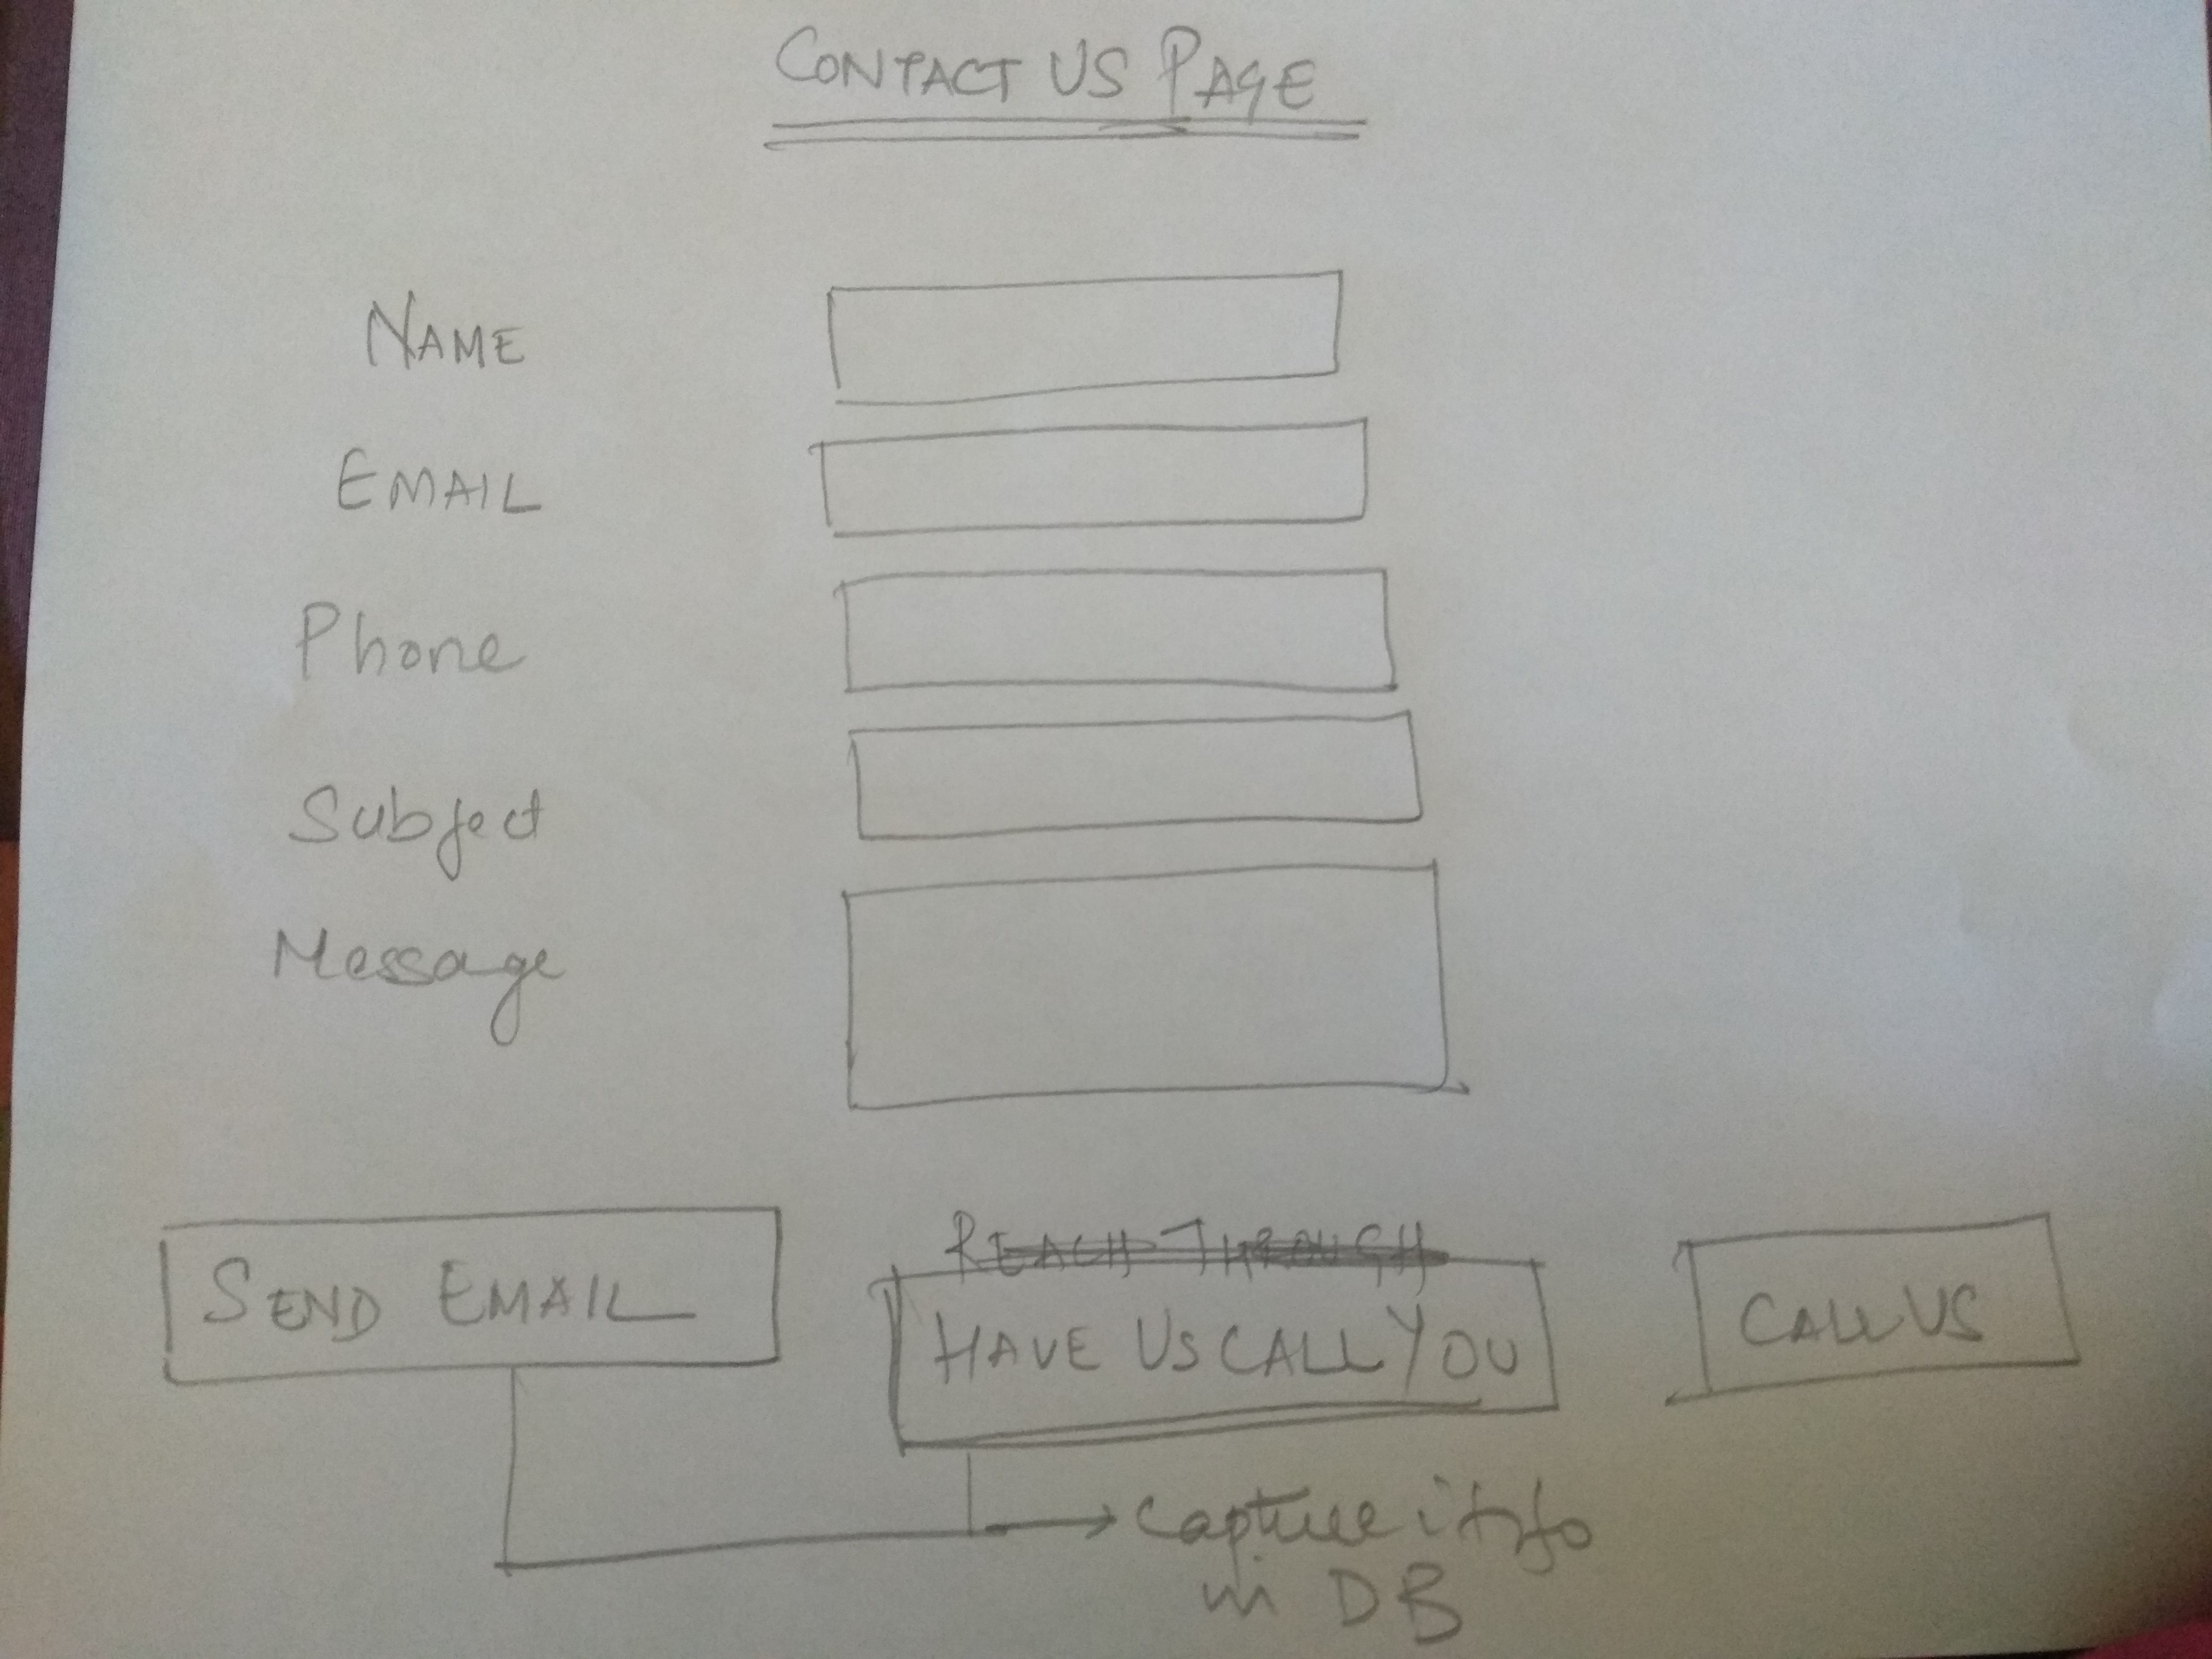 CONTACT US PAGE
NAME
EMAIL
Phone
Subject
Message
REACH THROUGH
SEND EMAIL
HAVE US CALL YOU
CALL US
Capture info
in DB